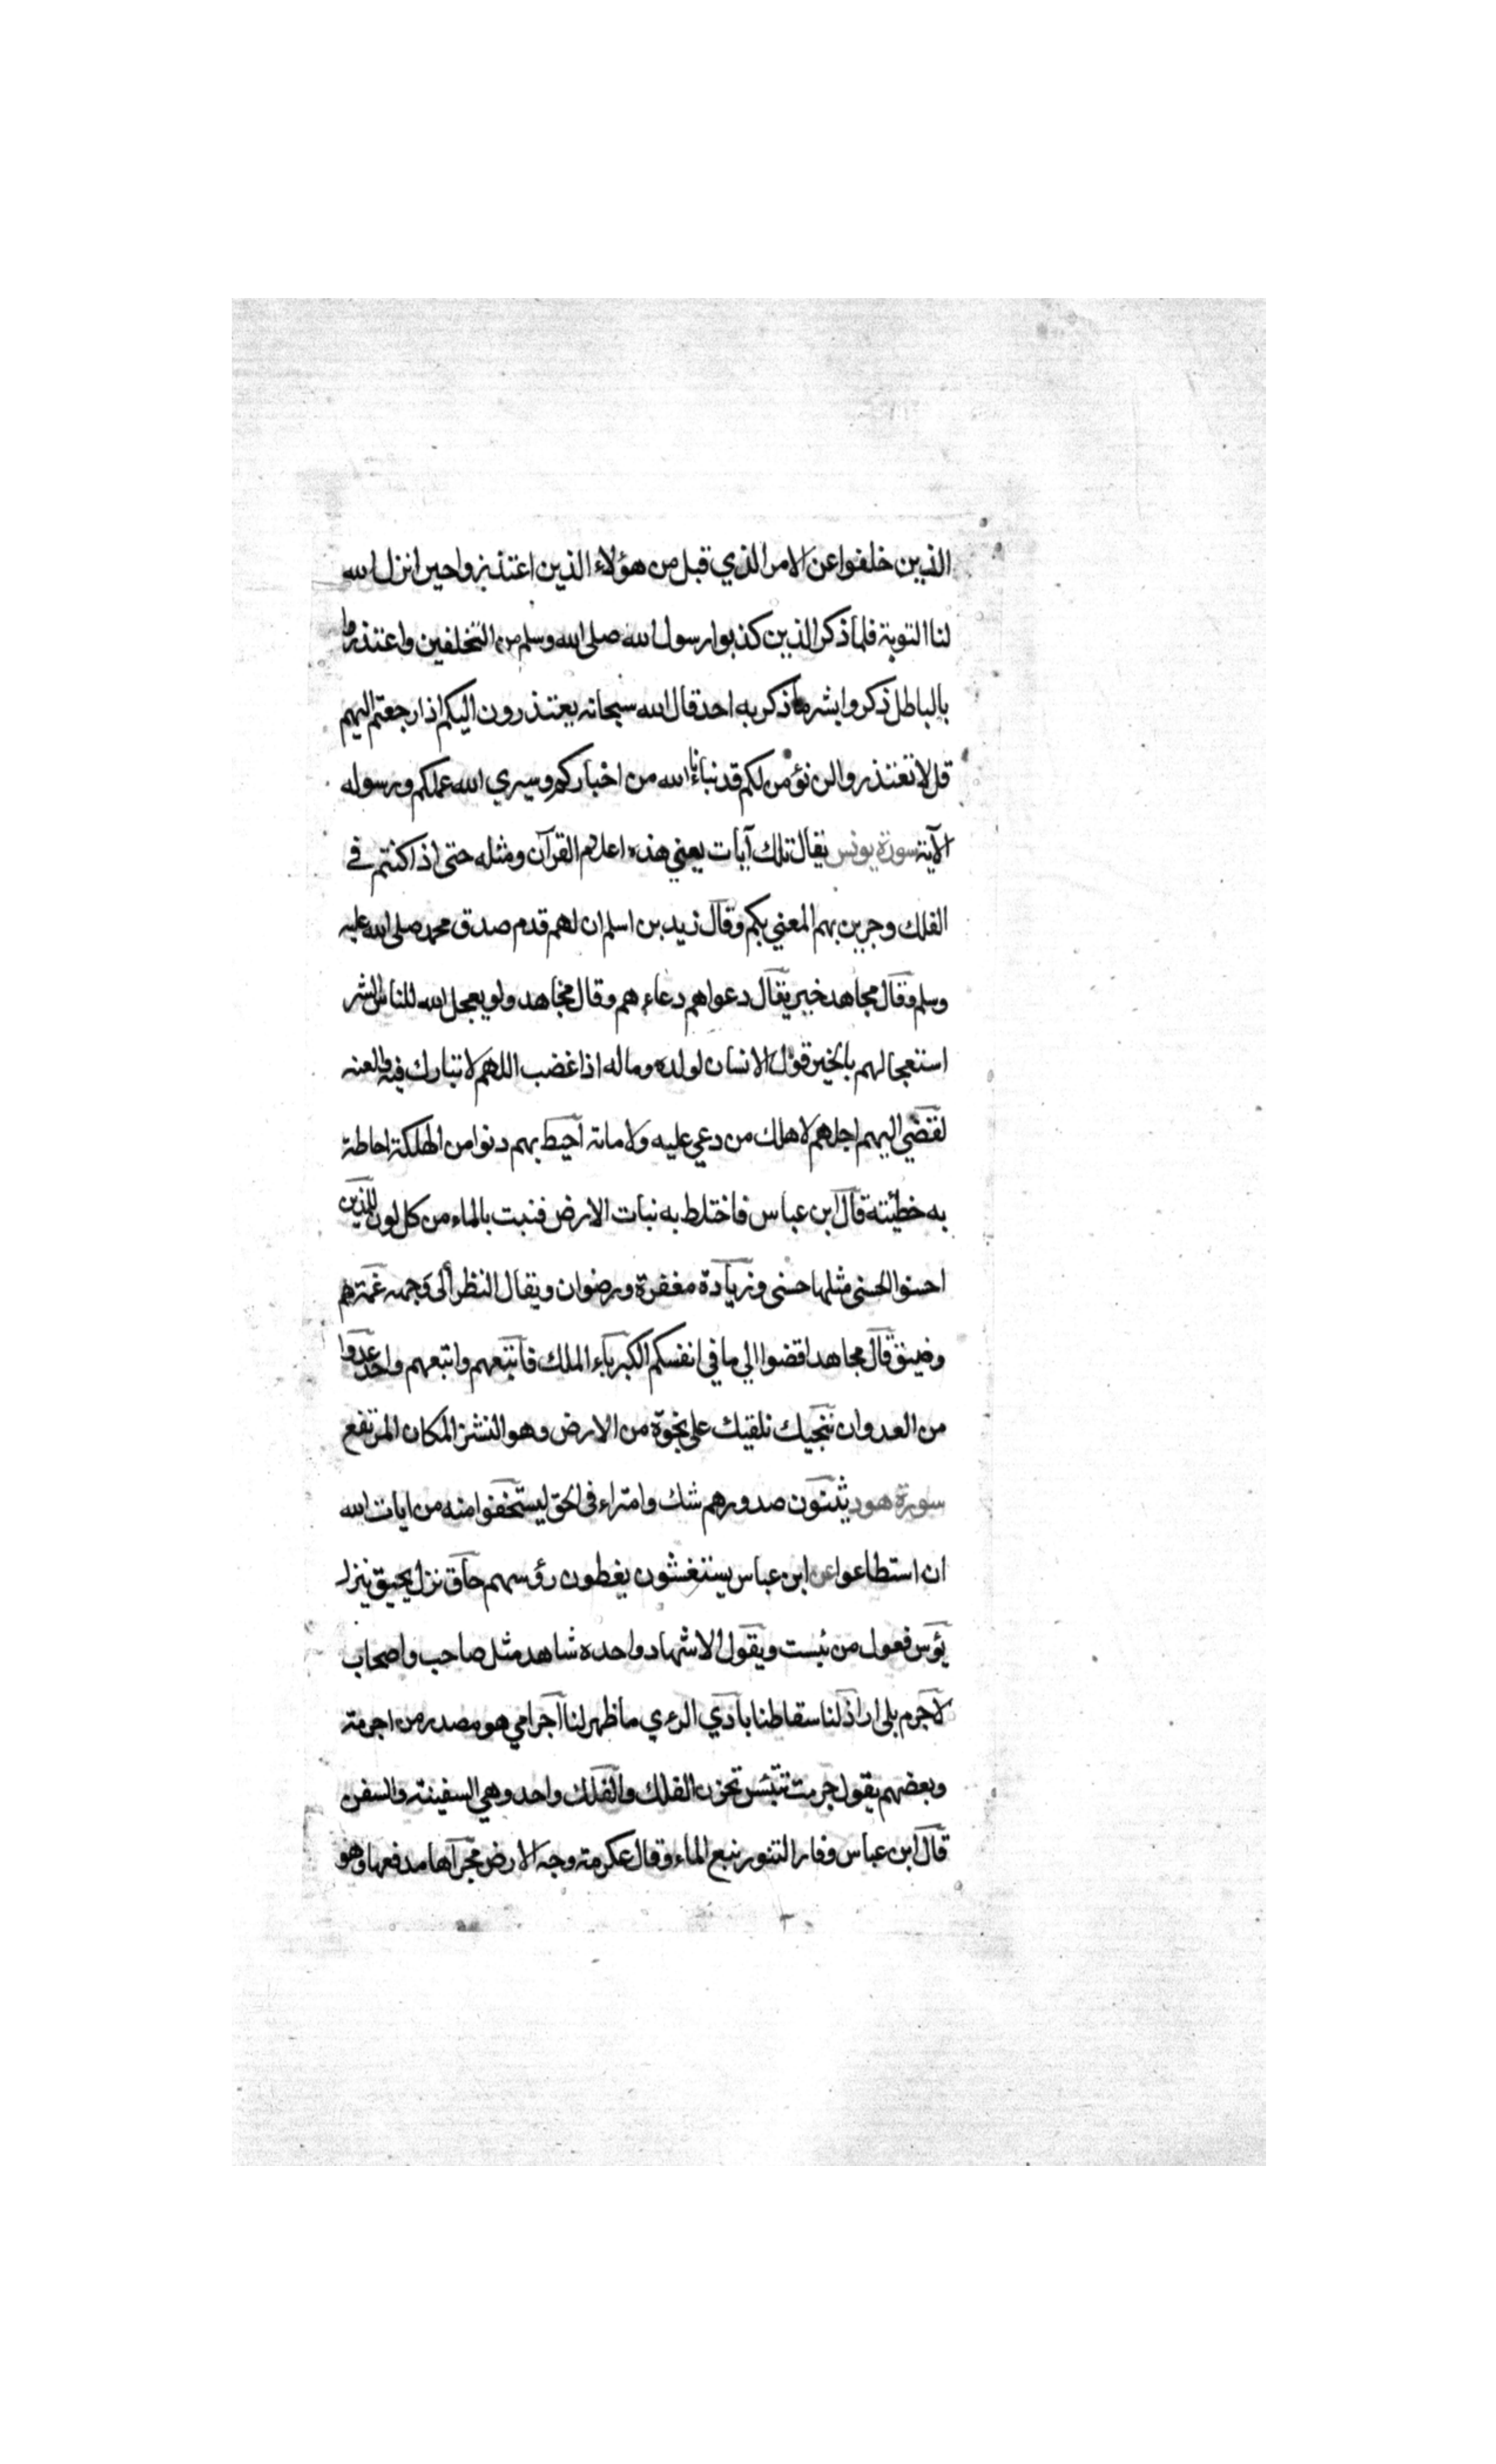 الذين خلفوا عن الامر الذي قبل من هؤلاء الذين اعتذروا حين انزل الله
لنا التوبة فلما ذكر الذين كذبوا رسول الله صلى الله وسلم من التخلفين واعتذروا
بالباطل ذكروا بشر ما ذكر به احد قال الله سبحانه يعتذرون اليكم اذا رجعتم اليهم
قل لا تعتذروا لن نؤمن لكم قد نباءنا الله من اخباركم وسيري الله عملكم ورسوله
الآية سورة يونس يقال تلك آيات يعني هذه اعلام القرآن ومثله حتى اذا كنتم في
الفلك وجرين بهم المعني بكم وقال زيد بن اسلم ان لهم قدم صدق محمد صلى الله عليه
وسلم وقال مجاهد خير يقال دعواهم دعاءهم وقال مجاهد ولو يعجل الله للناس الشر
استعجالهم بالخير قول الانسان لولده وماله اذا غضب اللهم لا تبارك فيه والعنه
لقضي اليهم اجلهم لاهلك من دعي عليه ولاماته احيط بهم دنوا من الهلكة احاطة
به خطيئته قال ابن عباس فاختلط به نبات الارض فنبت بالماء من كل لون للذين
احسنوا الحسنى مثلها حسنى وزيادة مغفرة ورضوان ويقال النظر الى وجهه غمة هم
وضيق قال مجاهد اقضوا الي ما في انفسكم الكبرياء الملك فاتبعهم واتبعهم واحد عدوا
من العدوان ننجيك نلقيك على نجوة من الارض وهو النشز المكان المرتفع
سورة هود يثنون صدورهم شك وامتراء في الحق ليستخفوا منه من ايات الله
ان استطاعوا عن ابن عباس يستغشون يغطون رؤسهم حاق نزل يحيق ينزل
يؤس فعول من يئست ويقول الاشهاد واحده شاهد مثل صاحب واصحاب
لاجرم بلى اراذلنا سقاطنا بادي الرءي ما ظهر لنا اجرامي هو مصدر من اجرمت
وبعضهم يقول جرمت تبتئس تحزن الفلك والفلك واحد وهي السفينة والسفن
قال ابن عباس وفار التنور نبع الماء وقال عكرمة وجه الارض مجراها مدفعها وهو